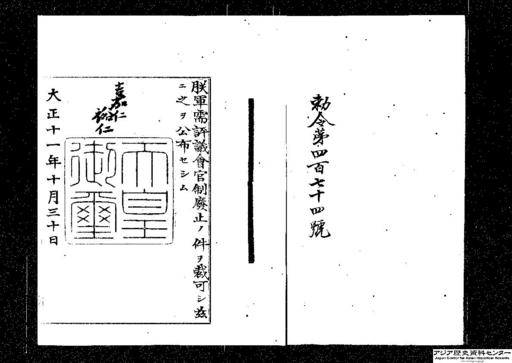 勅令第四百七十四號
朕軍需評議會官制廢止ノ件ヲ裁可シ茲
ニ之ヲ公布セシム
嘉仁
裕仁
天皇
御璽
大正十一年十月三十日
アジア歴史資料センター
Japan Center for Asian Historical Records